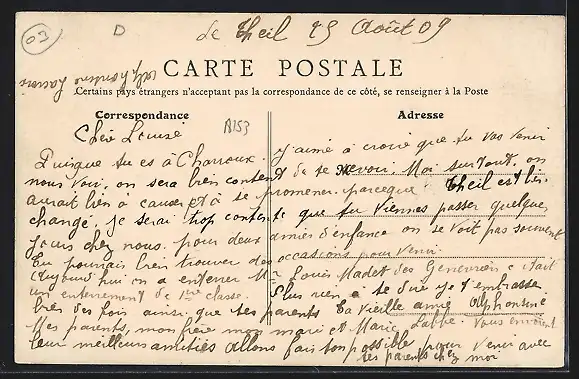 03
D
Le Theil 19 Août 09
Alphonsine
CARTE POSTALE
Certains pays étrangers n'acceptant pas la correspondance de ce côté, se renseigner à la Poste
Correspondance
Adresse
A153
Cher Louise
J'aime à croire que tu vas venir
Puisque tu es à Charroux.
nous voir, on sera bien content de te revoir. Moi surtout, on
aurait bien à causer et à se promener. parceque Theil est bien
changé, je serai trop contente que tu viennes passer quelques
jours chez nous. pour deux amies d'enfance on se voit pas souvent
Tu pourrais bien trouver des occasions pour venir.
Aujourd'hui on a enterrer Mr Louis Madet des c'était
un enterrement de 1ère classe.
Plus rien à te dire je t'embrasse
bien des fois ainsi que tes parents Ta vieille amie Alphonsine
Mes parents, mon frère mon mari et Marie Labbe. Vous envoient
leur meilleurs amitiés allons fais ton possible pour venir avec
tes parents chez moi